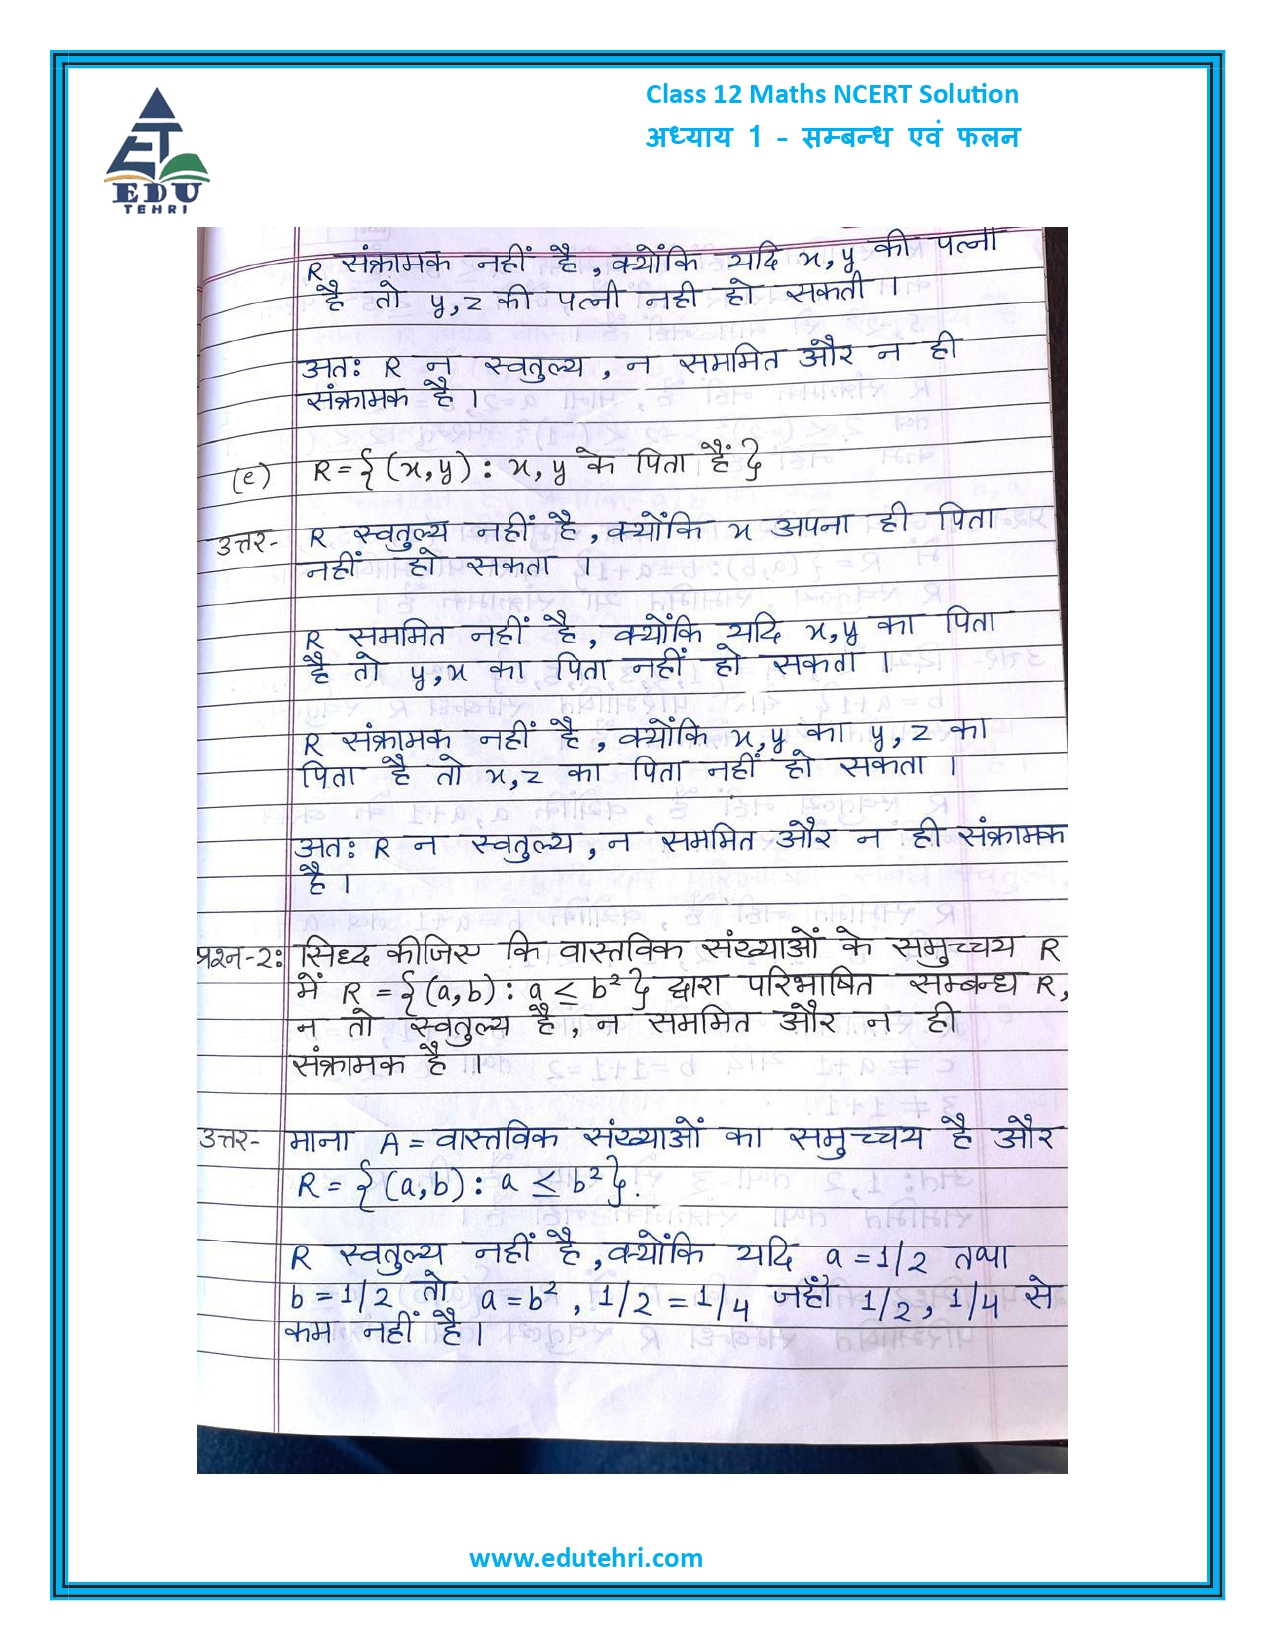 Class 12 Maths NCERT Solution
अध्याय 1 - सम्बन्ध एवं फलन
ET
EDU
TEHRI
R संक्रामक नहीं है, क्योंकि यदि x,y की पत्नी
है तो y,z की पत्नी नही हो सकती ।
अतः R न स्वतुल्य, न सममित और न ही
संक्रामक है ।
(e) R={(x,y): x,y के पिता हैं}
उत्तर- R स्वतुल्य नहीं है, क्योंकि x अपना ही पिता
नहीं हो सकता ।
R सममित नहीं है, क्योंकि यदि x,y का पिता
है तो y,x का पिता नहीं हो सकता ।
R संक्रामक नहीं है, क्योंकि x,y का y,z का
पिता है तो x,z का पिता नहीं हो सकता ।
अतः R न स्वतुल्य, न सममित और न ही संक्रामक
है ।
प्रश्न-2: सिध्द कीजिए कि वास्तविक संख्याओं के समुच्चय R
में R = {(a,b): a ≤ b²} द्वारा परिभाषित सम्बन्ध R,
न तो स्वतुल्य है, न सममित और न ही
संक्रामक है ।
उत्तर- माना A = वास्तविक संख्याओं का समुच्चय है और
R = {(a,b): a ≤ b²}.
R स्वतुल्य नहीं है, क्योंकि यदि a = 1/2 तथा
b = 1/2 तो a = b², 1/2 = 1/4 जहाँ 1/2, 1/4 से
कम नहीं है ।
www.edutehri.com